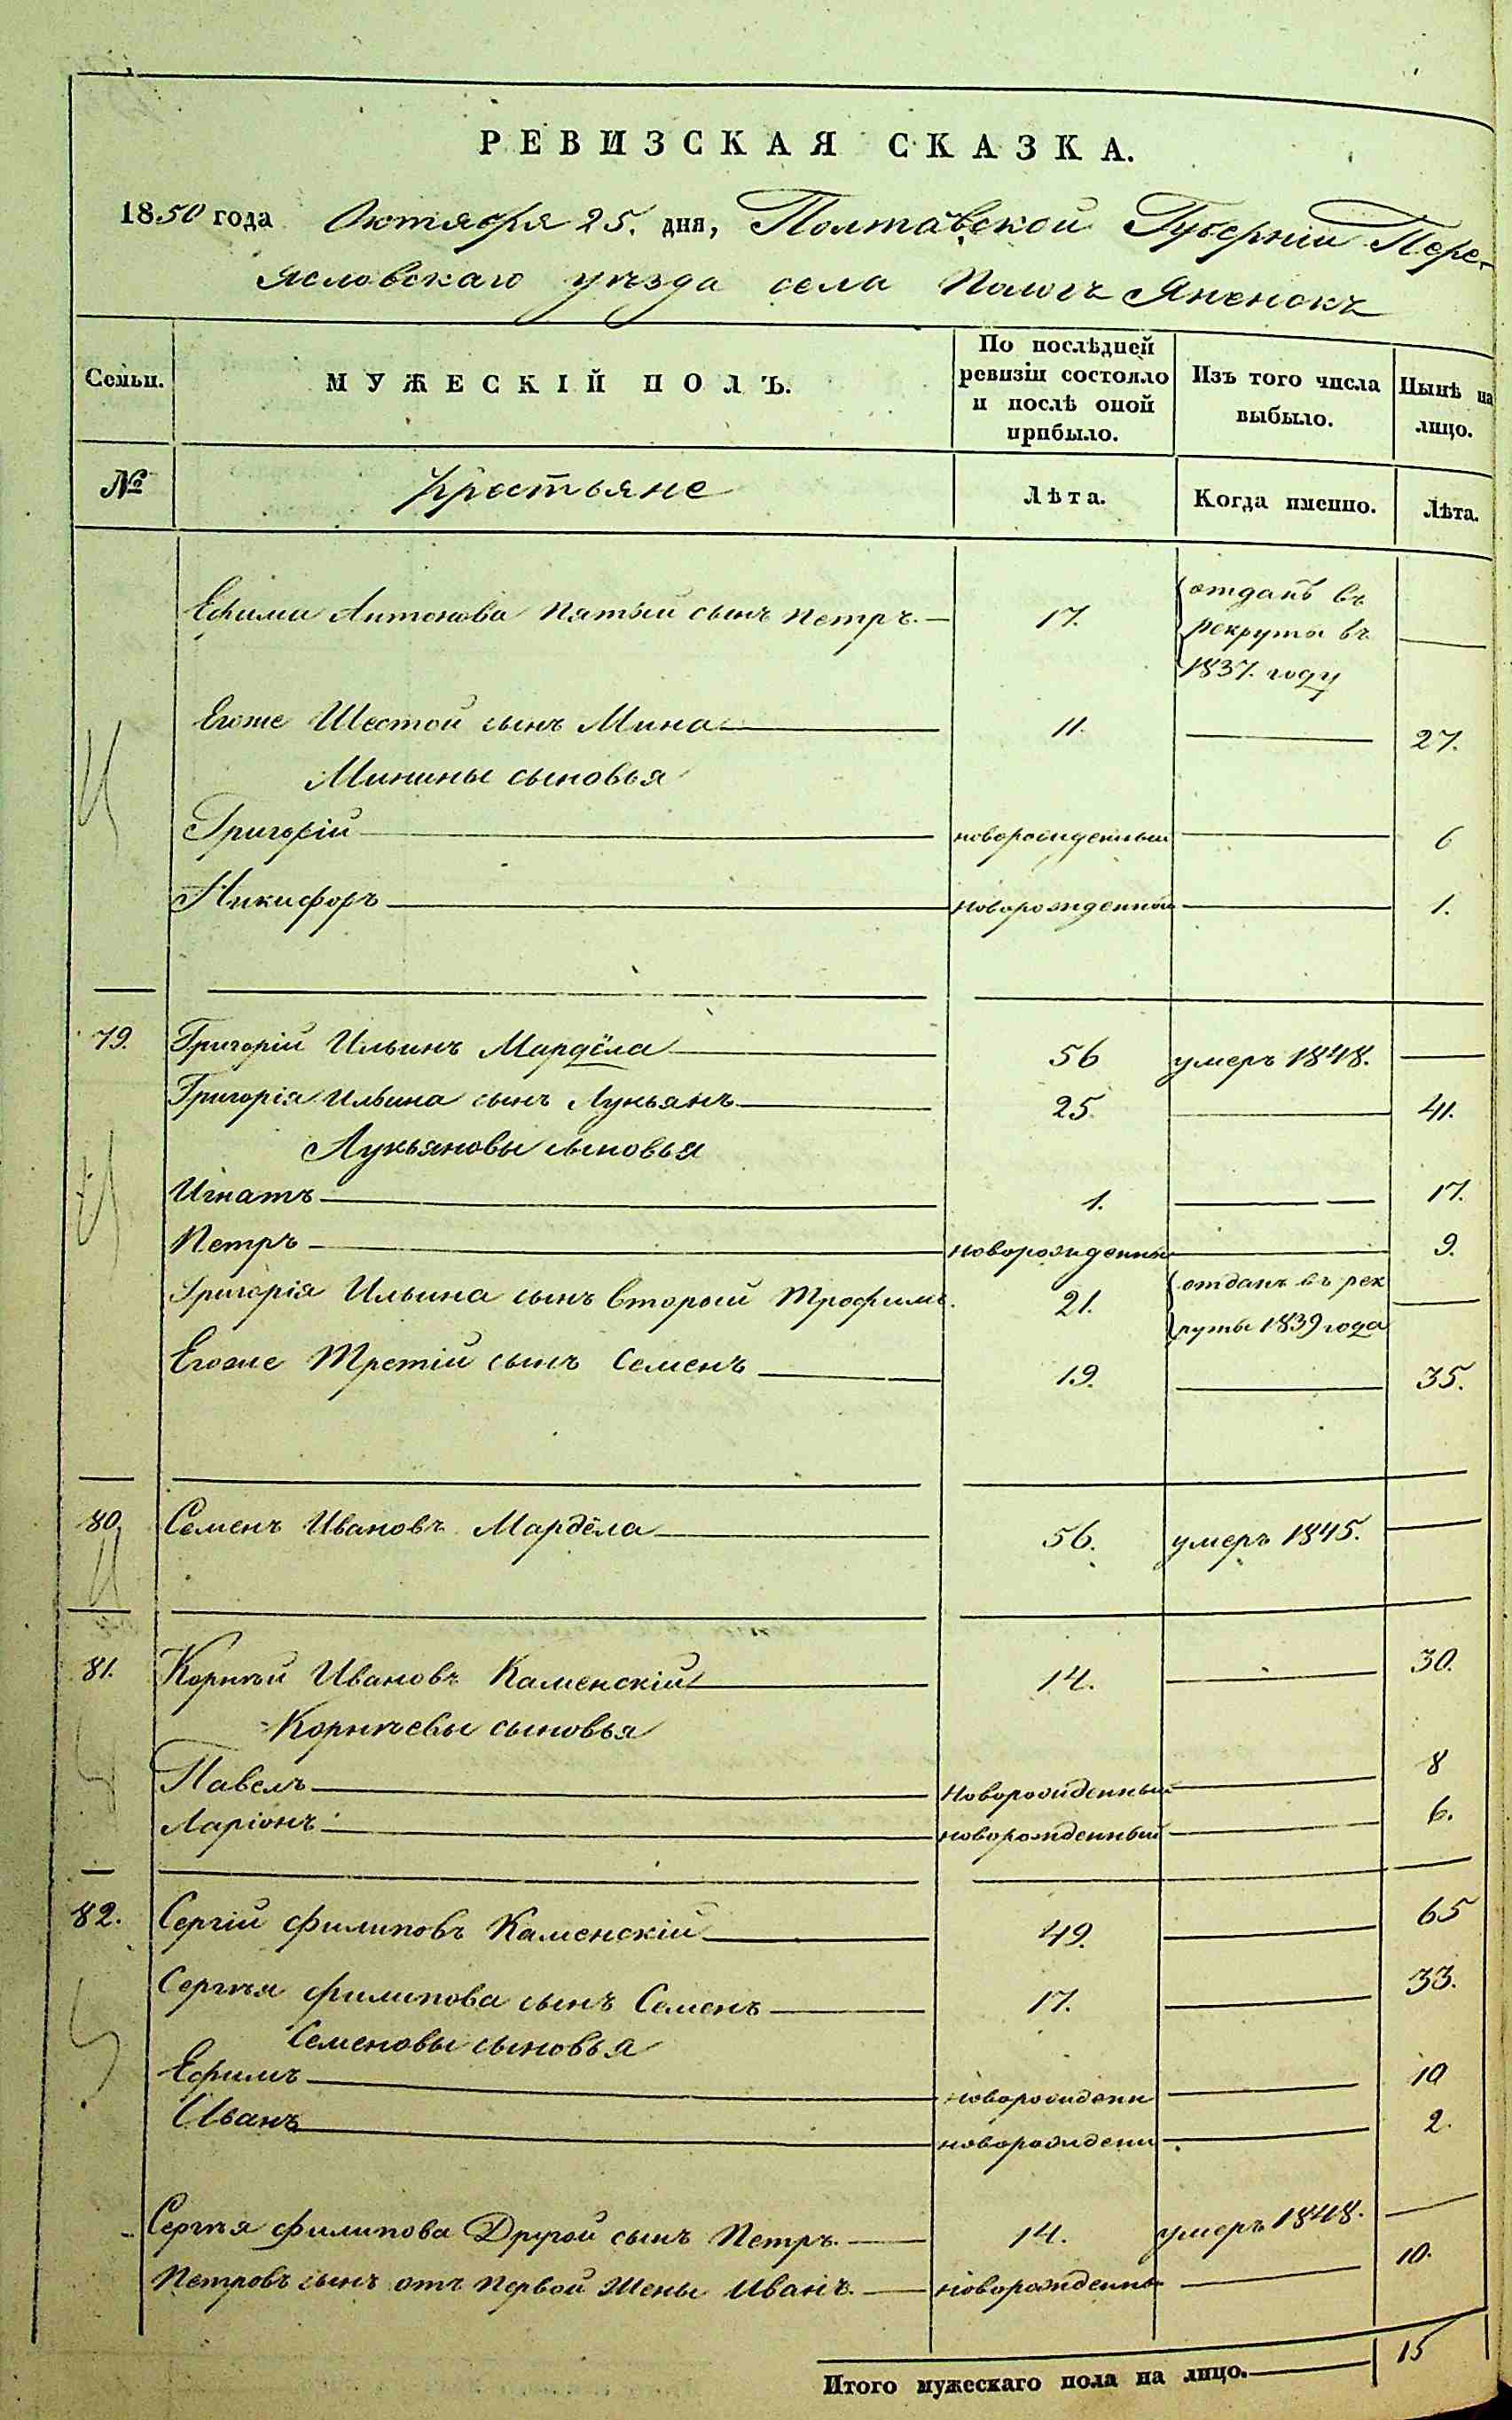 РЕВИЗСКАЯ СКАЗКА.
1850 года Октября 25. дня, Полтавской Губерніи Пере-
яславскаго уѣзда села Пологъ Яненокъ
Семьи.
МУЖЕСКІЙ ПОЛЪ.
По послѣдней
ревизіи состояло
и послѣ оной
прибыло.
Изъ того числа
выбыло.
Нынѣ на
лицо.
№
Крестьяне
Лѣта.
Когда именно.
Лѣта.
Ефима Антонова пятый сынъ Петръ. — 17. отданъ въ
рекруты въ
1837. году
Егоже Шестой сынъ Мина — 11. — 27.
Минины сыновья
Григорій — новорожденный — 6
Никифоръ — новорожденной — 1.
79. Григорій Ильинъ Мардёла — 56 умеръ 1848. —
Григорія Ильина сынъ Лукьянъ — 25. — 41.
Лукьяновы сыновья
Игнатъ — 1. — 17.
Петръ — новорожденны — 9.
Григорія Ильина сынъ вторый Трофимъ. 21. отданъ въ рек
руты 1839 года —
Егоже Третій сынъ Семенъ — 19. — 35.
80. Семенъ Ивановъ Мардёла — 56. умеръ 1845. —
81. Корнѣй Ивановъ Каменскій — 14. — 30.
Корнѣевы сыновья
Павелъ — Новорожденный — 8
Ларіонъ — новорожденный — 6.
82. Сергій Филиповъ Каменскій — 49. — 65
Сергѣя Филипова сынъ Семенъ — 17. — 33.
Семеновы сыновья
Ефимъ — новорожденн — 10
Иванъ — новорожденн — 2.
Сергѣя Филипова Другой сынъ Петръ. — 14. умеръ 1848. —
Петровъ сынъ отъ первой Жены Иванъ. — новорожденны — 10.
Итого мужескаго пола на лицо. — 15